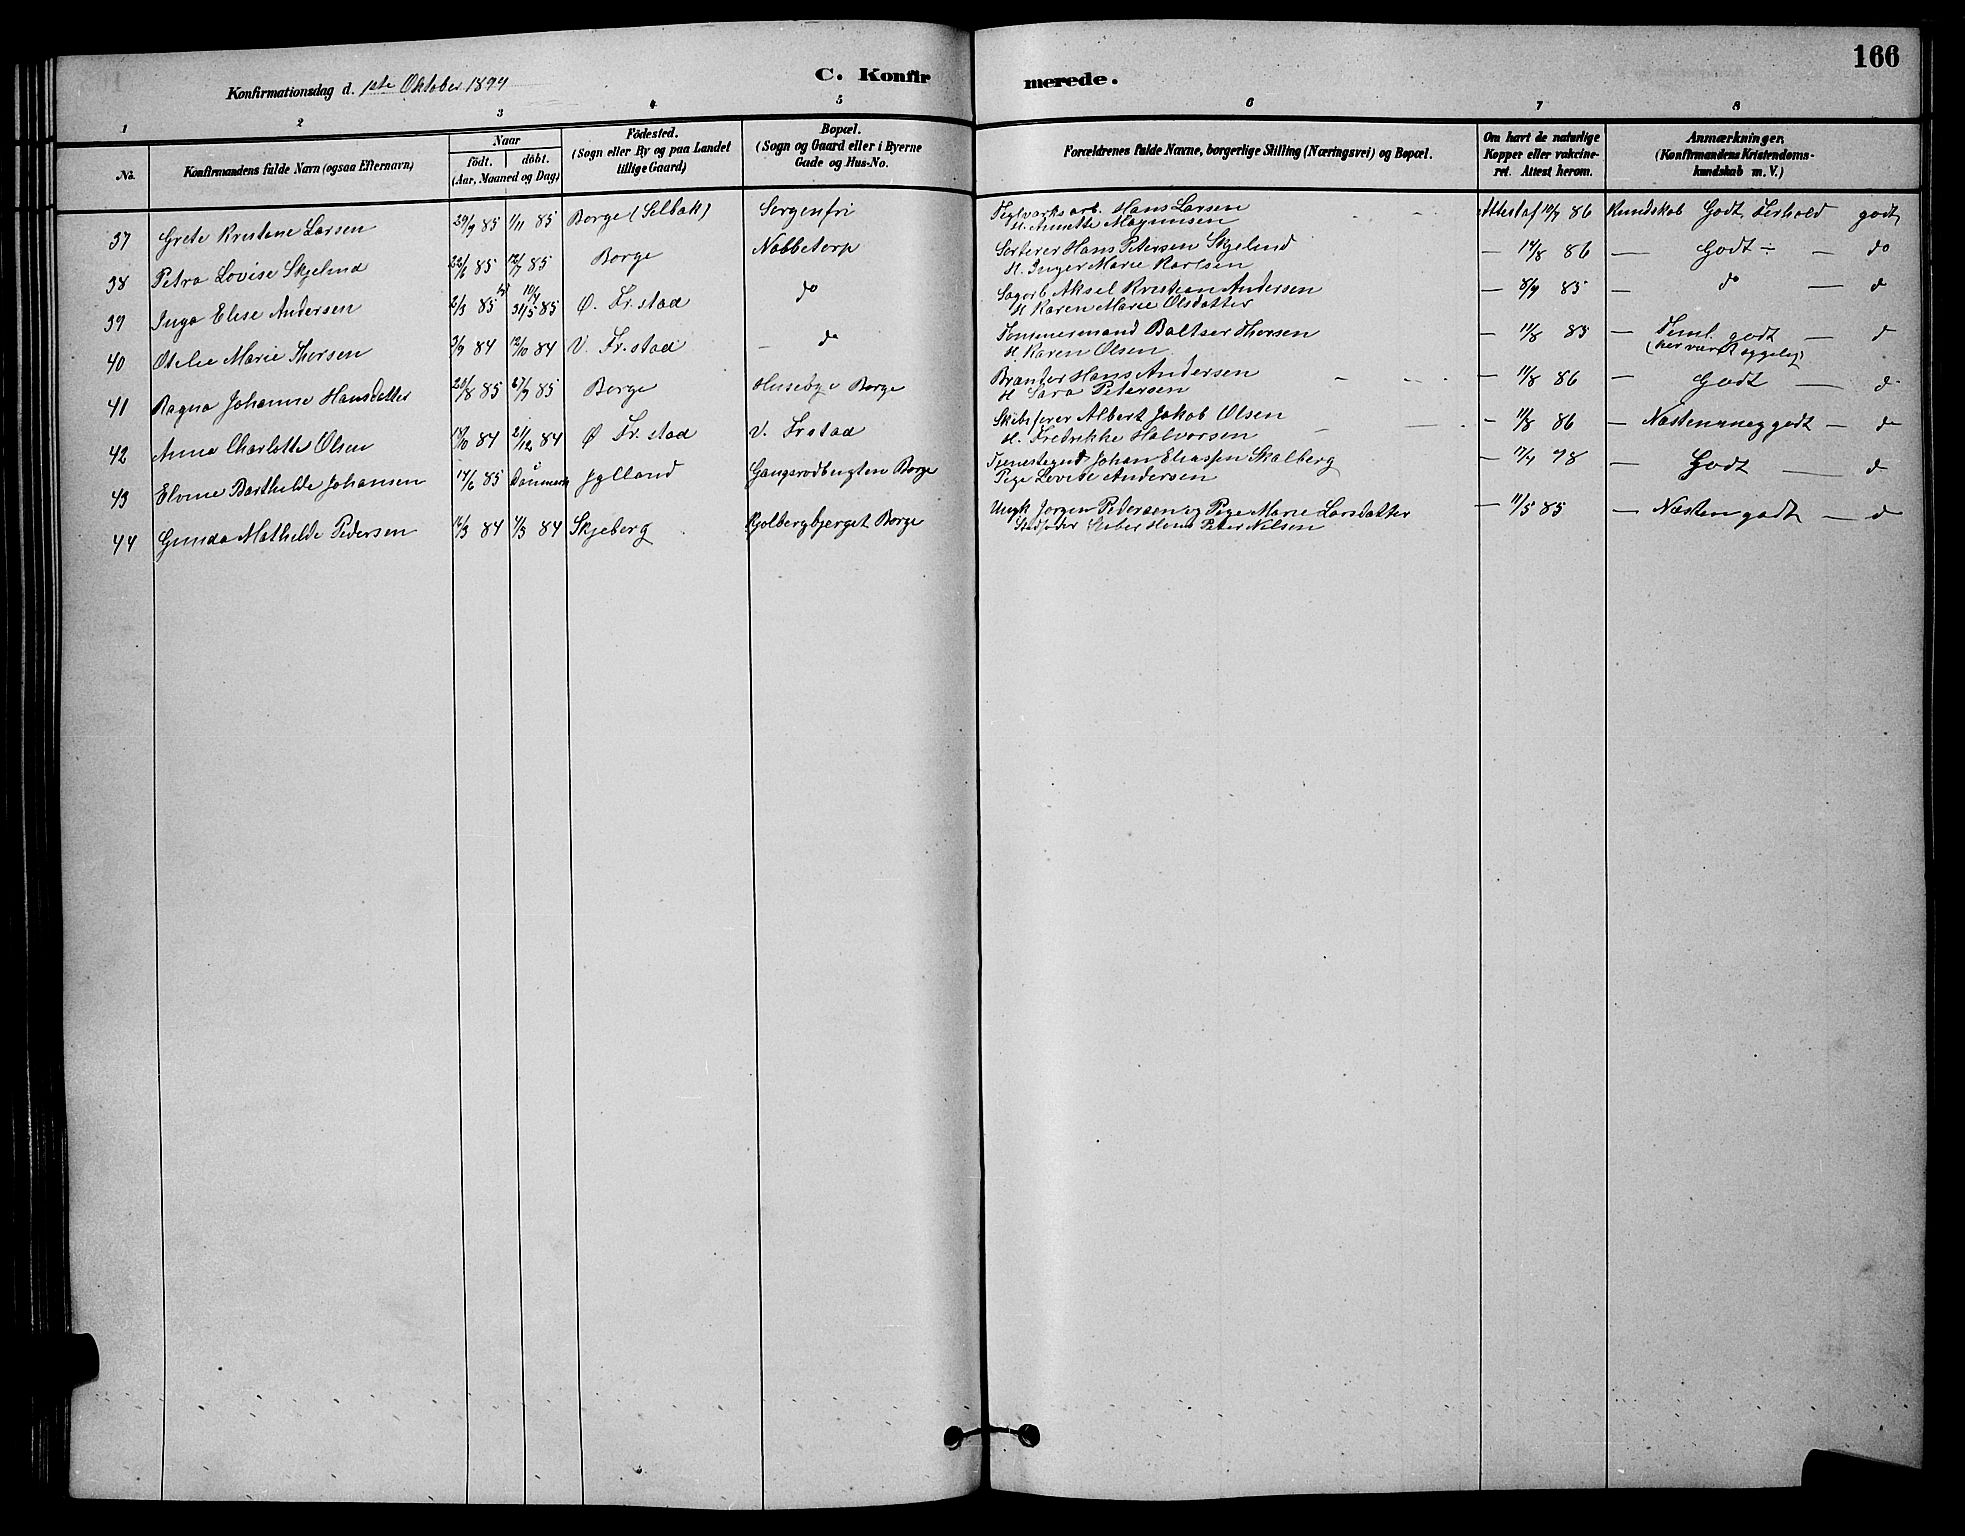 166
Konfirmationsdag d. 1ste Oktober 1899
C. Konfirmerede.
1 2 3 4 5 6 7 8
No. Konfirmandens fulde Navn (ogsaa Efternavn) Naar födt. döbt. (Aar, Maaned og Dag) Födested. (Sogn eller By og paa Landet tillige Gaard) Bopæl. (Sogn og Gaard eller i Byerne Gade og Hus-No. Forældrenes fulde Navne, borgerlige Stilling (Næringsvei) og Bopæl. Om havt de naturlige Kopper eller vakcineret. Attest herom. Anmærkninger. (Konfirmandens Kristendomskundskab m. V.)
37 Grete Kristene Larsen 29/9 85 1/11 85 Borge (Selbak) Sorgenfri Teglværksarb. Hans Larsen Attest af 10/9 86 Kundskab Godt, Forhold godt
H. Annette Magnusen
38 Petra Lovise Skjelind 22/6 85 12/7 85 Borge Nabbetorp Sorterer Hans Petersen Skjelind — 14/8 86 — Godt ÷ — do
H. Inger Marie Karlsen
39 Inga Elise Andersen 2/3 85 31/5 85 Ø. Fr.stad do Sagarb. Aksel Kristian Andersen — 8/9 85 — do — d
H Karen Marie Olsdatter
40 Otelie Marie Thorsen 3/9 84 12/10 84 V. Fr.stad — do Tømmermand Baltser Thorsen — 11/8 85 — Teml. godt — d
H Karen Olsen
41 Ragna Johanne Hansdatter 20/8 85 27/9 85 Borge Husebye Borge Brænder Hans Andersen — 11/8 86 — Godt — d
H Sara Petersen
42 Anna Charlotte Olsen 19/10 84 21/12 84 Ø Fr.stad V. Frstad Skibsfører Albert Jakob Olsen — 11/8 86 — Næsten meg godt — d
H. Fredrikke Halvorsen
43 Elvine Barthilde Johansen 14/6 85 Danmark Jylland Gangsrødbugten Borge Tjenestegut Johan Eliassen Skalberg — 17/4 98 — Godt — d
Pige Lovise Andersen
44 Gunda Mathilde Pedersen 16/3 84 1/3 84 Skjeberg Kjølbergbjerget Borge Ungk Jørgen Pedersen og Pige Marie Larsdatter — 11/5 85 — Næsten godt — d
Stedfader Hans Peter Nilsen